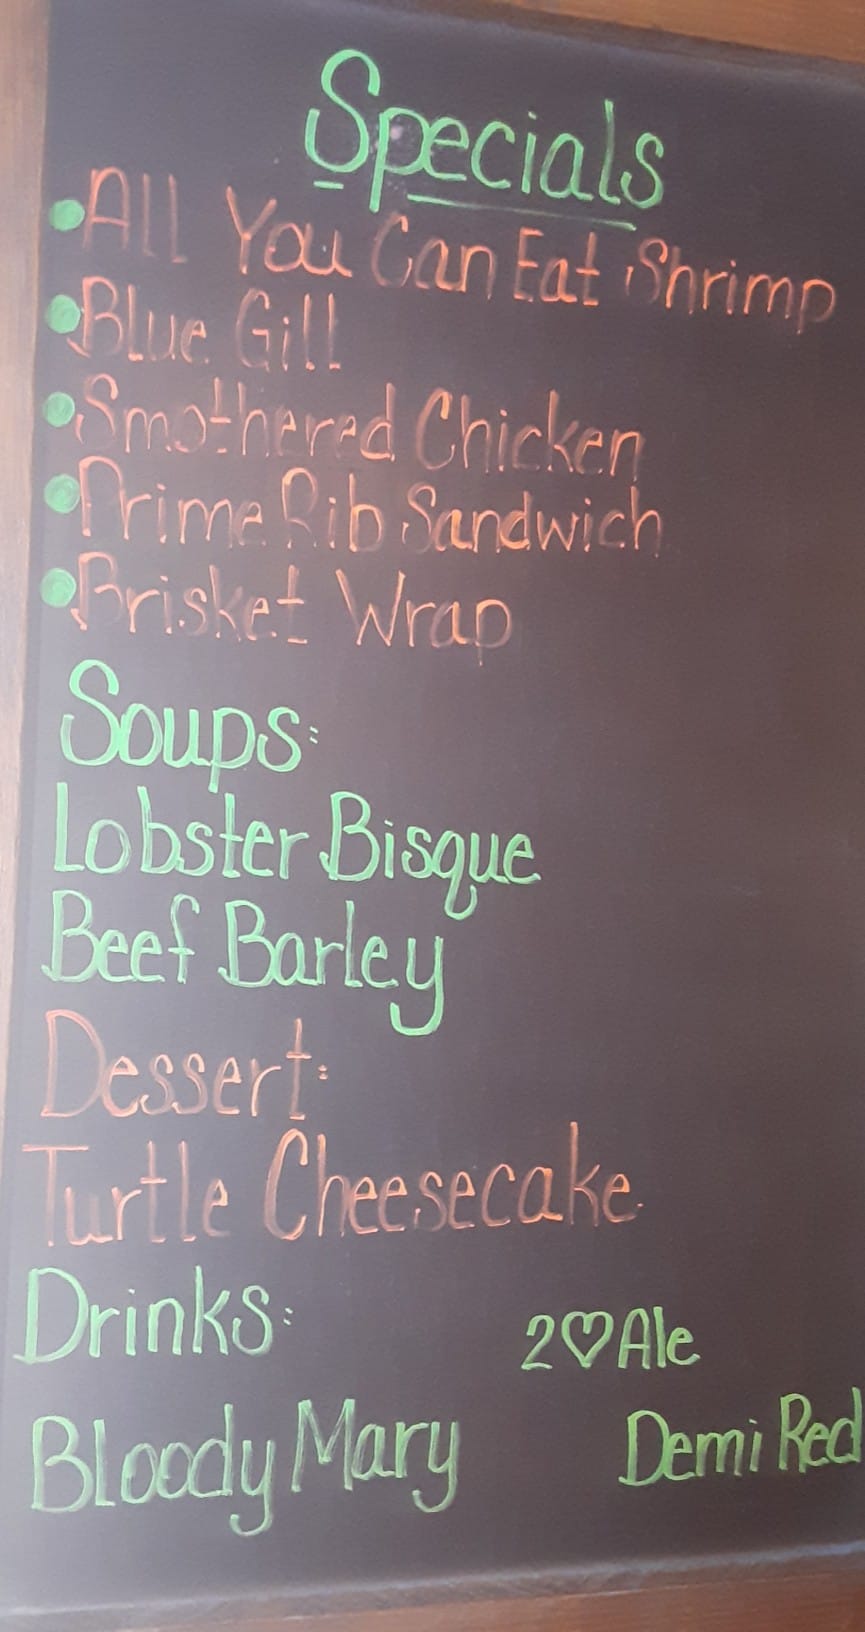 Specials
•All You Can Eat Shrimp
•Blue Gill
•Smothered Chicken
•Prime Rib Sandwich
•Brisket Wrap
Soups:
Lobster Bisque
Beef Barley
Dessert:
Turtle Cheesecake
Drinks:
2♡Ale
Bloody Mary
Demi Red